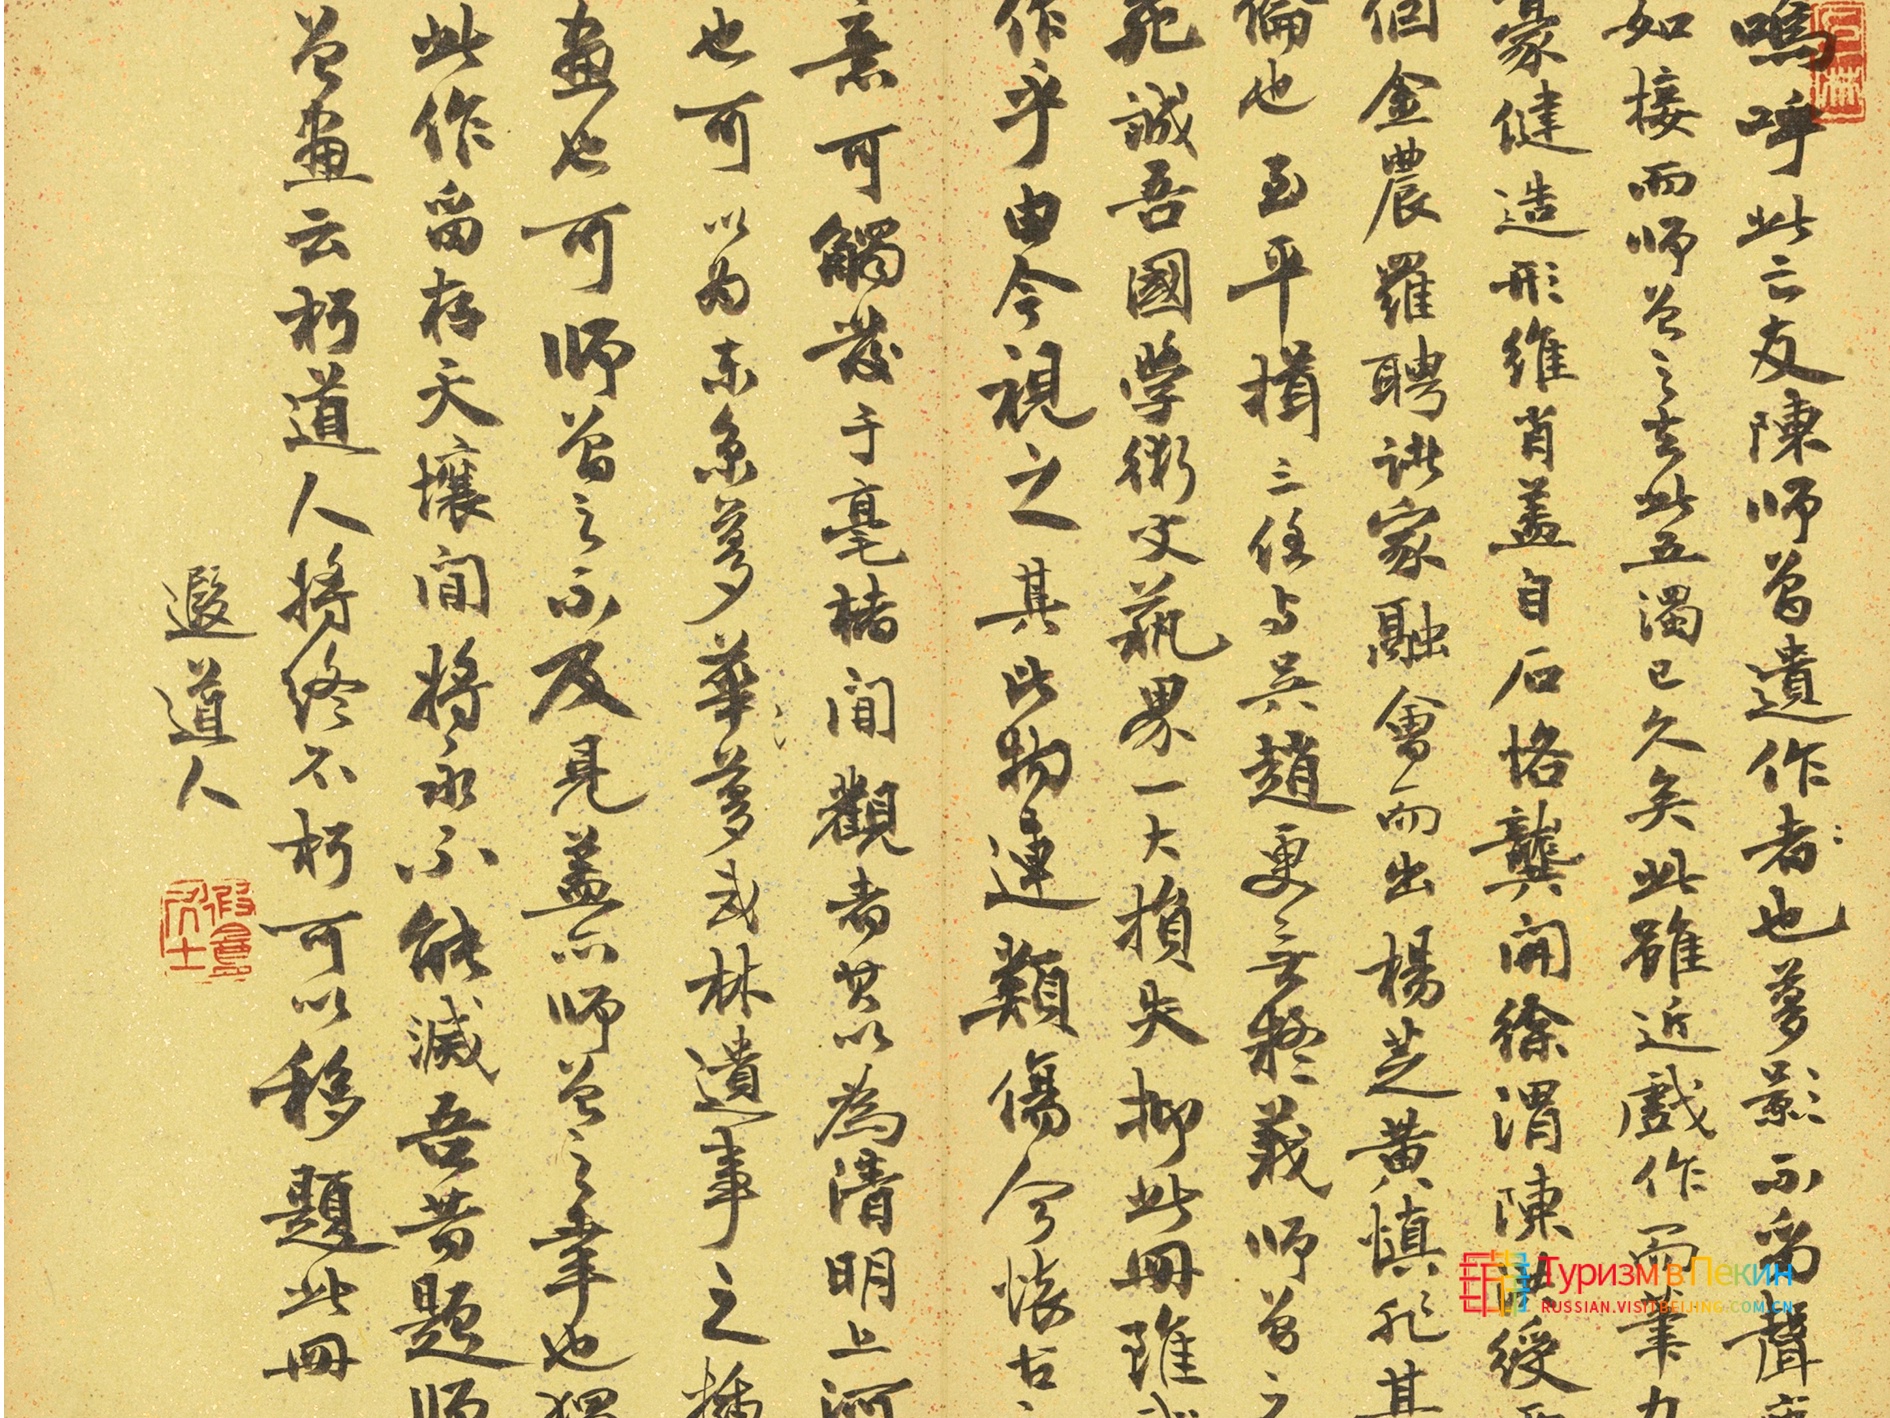 嗚呼此亡友陳師曾遺作者也夢影不留聲
如接而師曾之去此五濁已久矣此雖近戲作而筆力
豪健造形維肖蓋自石恪龔開徐渭陳洪綬
個金農羅聘諸家融會而出楊芝黃慎非其
倫也至平揖三任与吳趙更無疑義師曾之
死誠吾國學術文藝界一大損失抑此冊雖
作乎由今視之其比物連類傷今懷古
意可觸發于毫楮間觀者其以為清明上河
也可以为东京夢華夢或林遺事之插
畫也可師曾之不及見蓋亦師曾之幸也猶
此作留存天壤間將永不能滅吾昔題師
曾畫云朽道人將終不朽可以移題此冊
遐道人
遐庵居士
Туризм в Пекин
RUSSIAN.VISITBEIJING.COM.CN